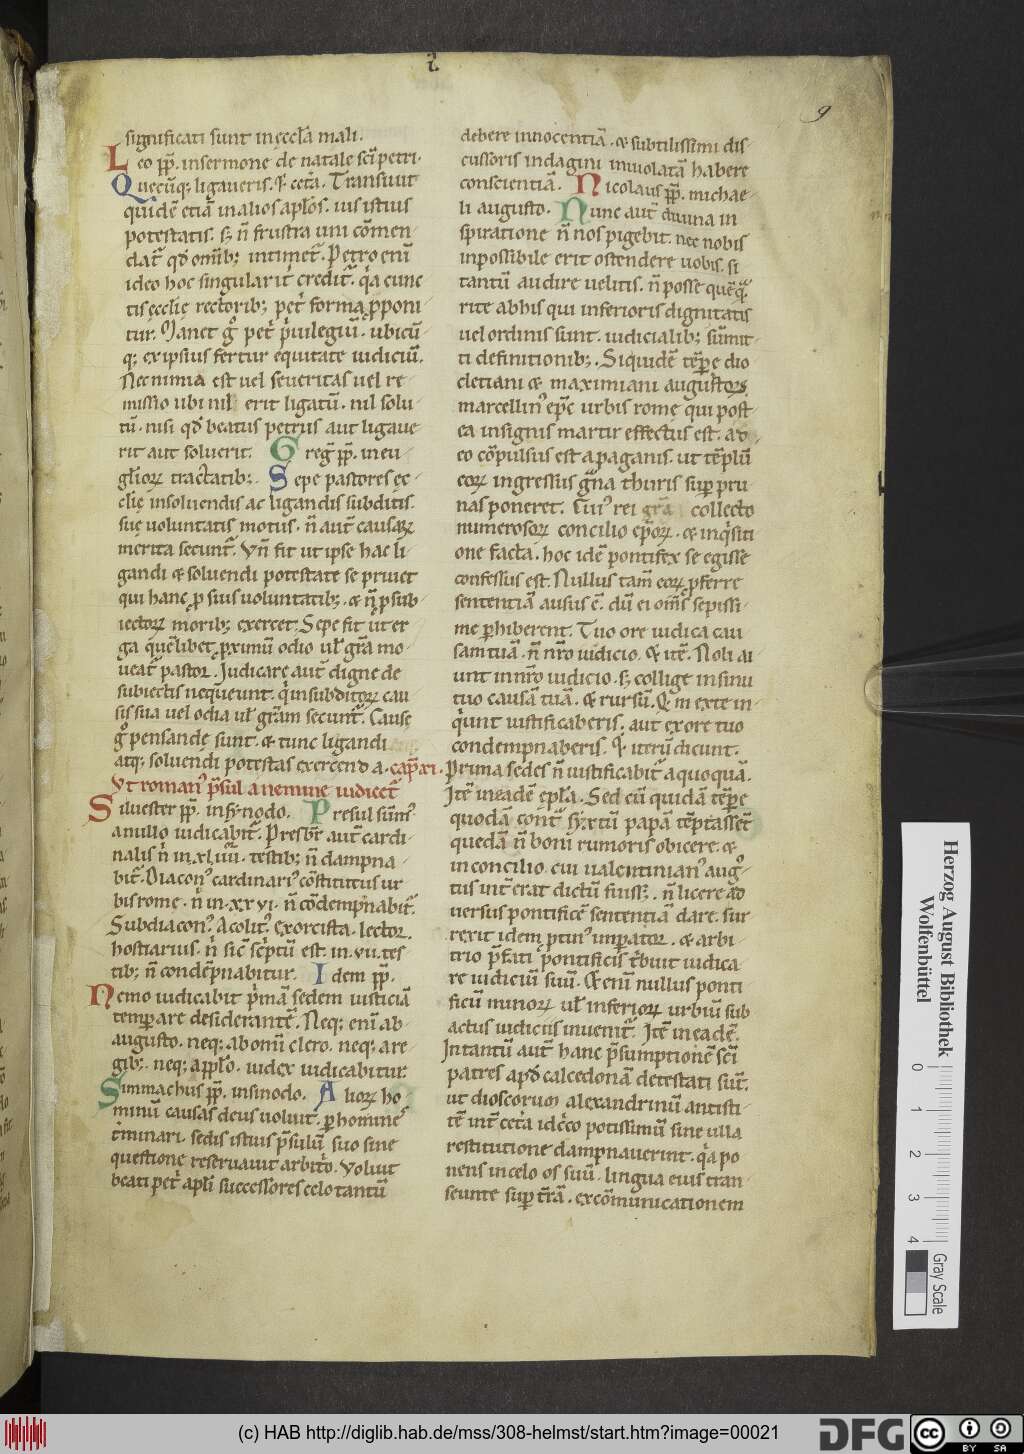 i
9
significati sunt in eccl̄a mali.
Leo pp̄. in sermone de natale sc̄i petri.
Quecūq; ligaueris. ⁊ cet̄a. Transiuit
quidē etiā in alios ap̄los. ius istius
potestatis. s; n̄ frustra uni cōmen
dat̄ qd̄ omīb; intimet̄. Petro enī
ideo hoc singularit̄ credit̄. qͥa cunc
tis ęcclię rectorib; pet̓ forma p̄poni
tur. Manet gͦ pet̓ p̓uilegiū. ubicū
q; ex ipsius fertur equitate iudiciū.
Nec nimia est uel seueritas uel re
missio ubi nil erit ligatū. nil solu
tū. nisi qd̄ beatus petrus aut ligaue
rit aut soluerit. Greḡ pp̄. in eu
glioꝝ tractatib; Sepe pastores ec
clię in soluendis ac ligandis subditis.
suę uoluntatis motus. n̄ aut̄ causaꝝ
merita secunt̄. Vn̄ fit ut ipse hac li
gandi & soluendi potestate se priuet
qui hanc ꝓ suis uoluntatib;. & n̄ ꝓ sub
iectoꝝ morib; exercet. Sepe fit ut er
ga quēlibet ꝓximū odio ul̄ gr̄a mo
ueat̄ pastor. Judicare aut̄ digne de
subiectis nequeunt. qͥ in subditoꝝ cau
sis sua uel odia ul̄ gr̄am secunt̄. Causę
gͦ pensandę sunt. & tunc ligandi
atq; soluendi potestas exercenda. cap̄ xi.
Vt roman᷒ p̄sul a nemine iudicet̄
Siluester pp̄. in sinodo. Presul sūm᷒
a nullo iudicabit̄. Presbr̄ aut̄ cardi
nalis n̓ in xliiii. testib; n̄ dampna
bit̄. Diacon᷒ cardinari᷒ cōstitutus ur
bis rome. n̓ in xxvi. n̄ cōdempnabit̄.
Subdiacon᷒. Acolit᷒. exorcista. lector.
hostiarius. n̓ sic̄ sc̓ptū est. in .vii. tes
tib; n̄ condēpnabitur. Idem pp̄.
Nemo iudicabit p̓mā sedem iusticiā
temperare desiderantē. Neq; enī ab
augusto. neq; ab omi clero. neq; a re
gib;. neq; a pp̄lo. iudex iudicabitur.
Simmachus pp̄. in sinodo. Alioꝝ ho
minū causas deus uoluit. ꝑ homines
t̓minari. sedis istius p̄sulū suo sine
questione reseruauit arbit̓o. Voluit
beati pet̓ ap̄li successores celo tantū
debere innocentiā. & subtilissimi dis
cussoris indagini inuiolatā habere
conscientiā. Nicolaus pp̄. michae
li augusto. Nunc aut̄ diuina in
spiratione n̄ nos pigebit. nec nobis
inpossibile erit ostendere uobis. si
tantū audire uelitis. n̄ posse quēq̄
rite ab his qui inferioris dignitatis
uel ordinis sunt. iudicialib; sūmit
ti definitionib;. Siquidē tēpe dio
cletiani & maximiani augustoꝝ
marcellin᷒ ep̄c urbis rome qui post
ea insignis martir effectus est. ad
eo cōpulsus est a paganis. ut tēplū
eoꝝ ingressus gͣna thuris suꝑ pru
nas poneret. Cui᷒ rei gr̄a collecto
numerosoꝝ concilio ep̄oꝝ. & inqͥsiti
one facta. hoc idē pontifex se egisse
confessus est. Nullus tam̄ eoꝝ ꝓferre
sententiā ausus ē. dū ei om̄s sepissi
me ꝑhiberent. Tuo ore iudica cau
sam tuā. n̄ nr̄o iudicio. & itē. Noli ai
unt in nr̄o iudicio. s; collige in sinu
tuo causā tuā. & rursū. Qm̄ ex te in
qͥunt iustificaberis. aut ex ore tuo
condempnaberis. & iterū dicunt.
Prima sedes n̄ iustificabit̄ a quoquā.
Itē in eadē epl̄a. Sed cū quidā tēpe
quodā cont̄ sixtū papā tēptassēt
quedā n̄ boni rumoris obicere. &
in concilio cui ualentinian᷒ aug᷒
tus int̄erat dictū fuiss;. n̄ licere ad
uersus pontificē sententiā dare. sur
rexit idem ꝓtin᷒ imꝑator. & arbi
trio p̄fati pontificis t̓buit iudica
re iudiciū suū. & enī nullus ponti
ficū minoꝝ ul̄ inferioꝝ urbiū sub
actus iudiciis inuenit̄. Itē in eadē.
In tantū aut̄ hanc p̄sumptionē sc̄i
patres apd̄ calcedonā detestati sūt.
ut dioscorum alexandrinū antisti
tē int̄ cet̄a idc̓co potissimū sine ulla
restitutione dampnauerint. qͥa po
nens in celo os suū. lingua eius tran
seunte suꝑ t̄rā. excōmunicationem
Herzog August Bibliothek
Wolfenbüttel
0 1 2 3 4
Gray Scale
(c) HAB http://diglib.hab.de/mss/308-helmst/start.htm?image=00021
DFG
cc BY SA